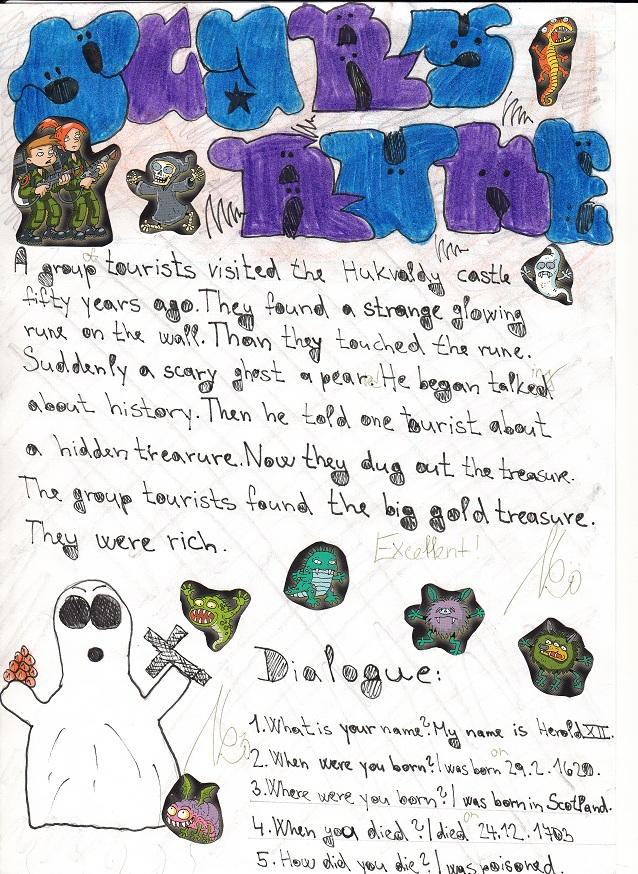 SCARY
RUNE
A group of tourists visited the Hukvaldy castle
fifty years ago. They found a strange glowing
rune on the wall. Than they touched the rune.
Suddenly a scary ghost a pear. He began talked
about history. Then he told one tourist about
a hidden trearure. Now they dug out the treasure.
The group tourists found the big gold treasure.
They were rich.
Excellent!
Dialogue:
1. What is your name? My name is Herold XII.
2. When were you born? I was born on 29.2. 1620.
3. Where were you born? I was born in Scotland.
4. When you died? I died on 24.12. 1703
5. How did you die? I was poisoned.